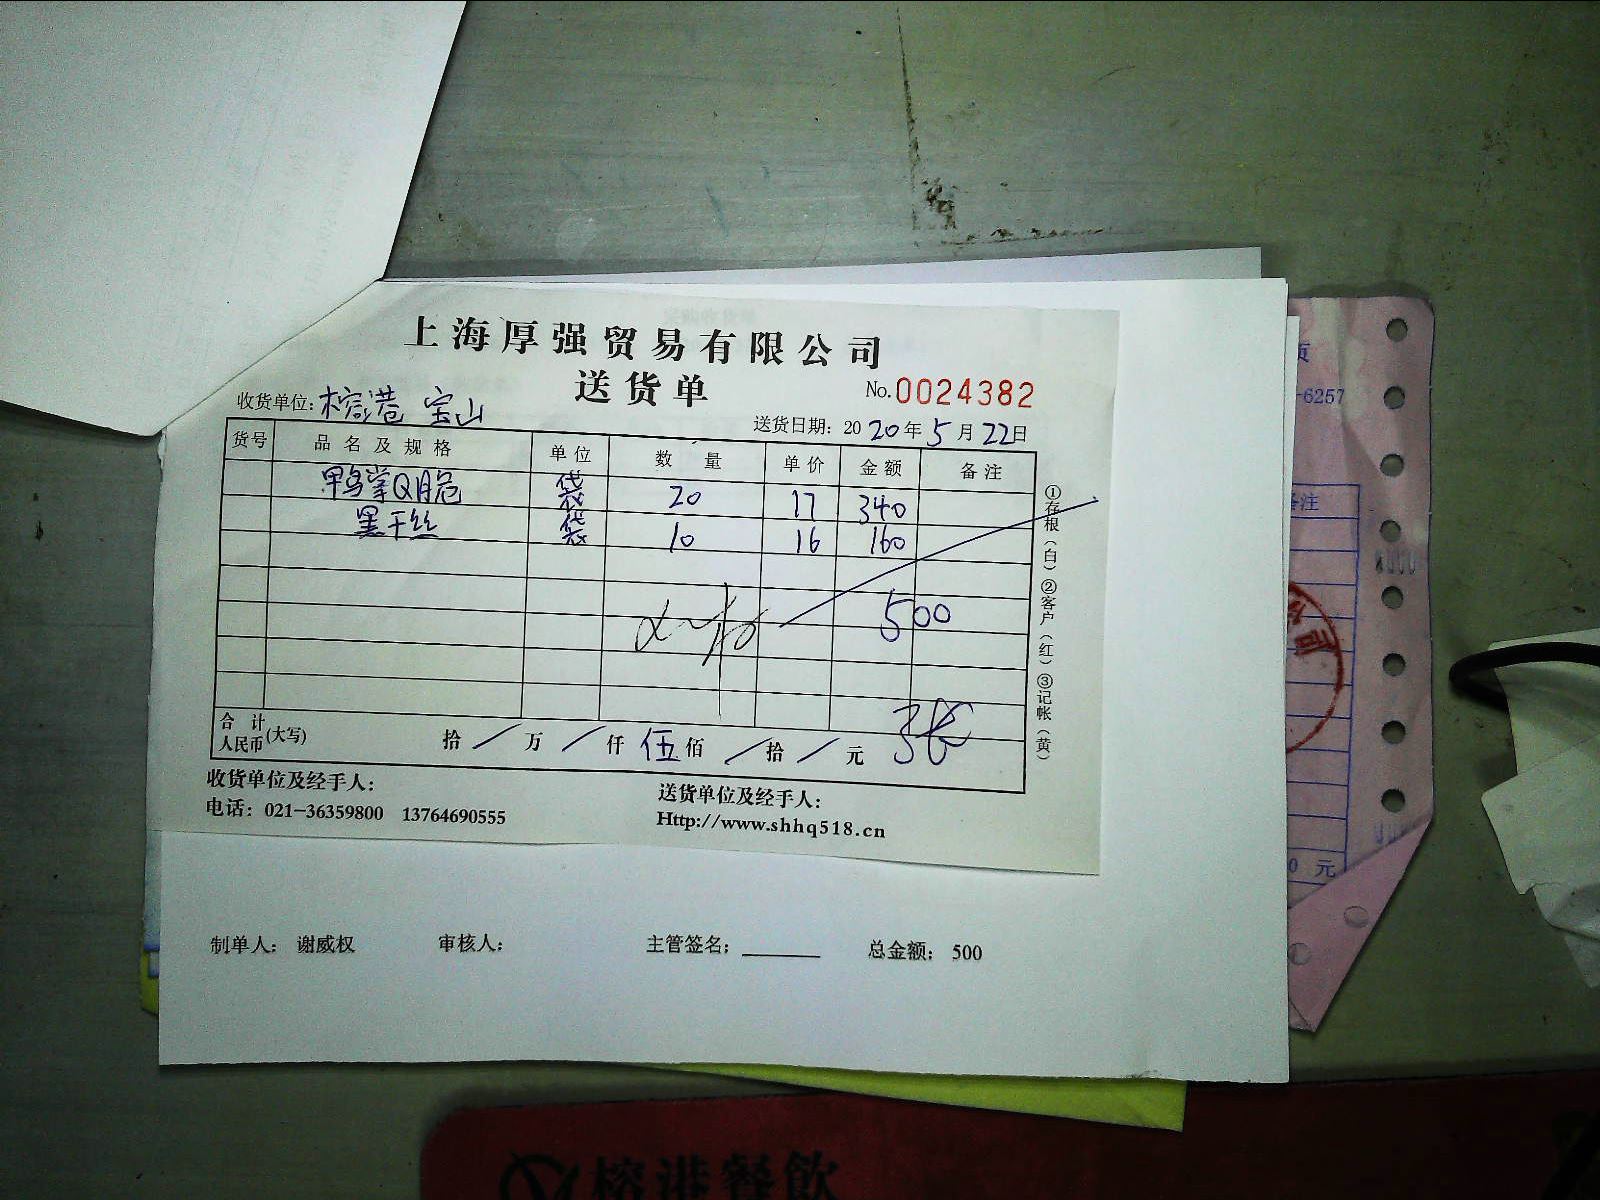 上海厚强贸易有限公司
送货单
No.0024382
收货单位: 榕港 宝山
送货日期: 2020年5月22日
货号 品名及规格 单位 数量 单价 金额 备注
鸭掌Q脆 袋 20 17 340
黑千丝 袋 10 16 160
500
合计人民币(大写) 拾 / 万 / 仟 伍 佰 / 拾 / 元 张
①存根(白) ②客户(红) ③记帐(黄)
收货单位及经手人:
送货单位及经手人:
电话: 021-36359800 13764690555
Http://www.shhq518.cn
制单人: 谢威权 审核人: 主管签名: 总金额: 500
-6257
备注
0 元
榕港餐飲